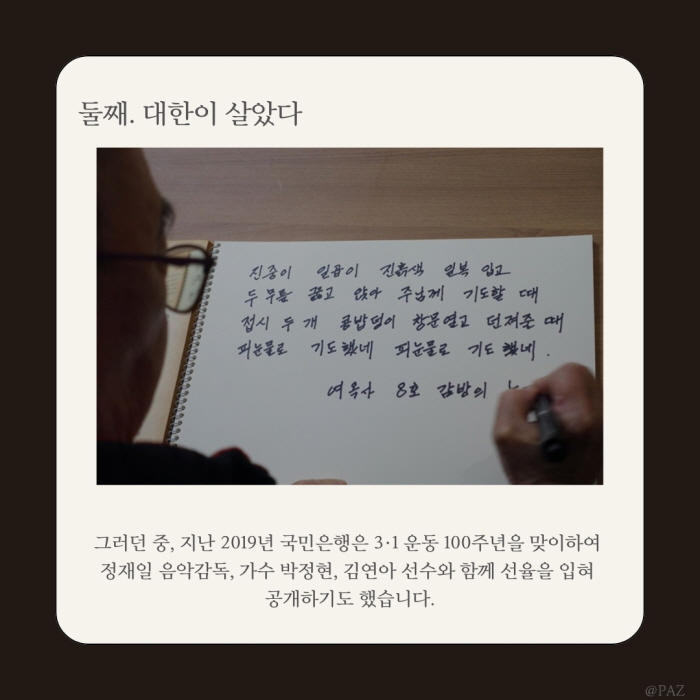 둘째. 대한이 살았다
진중이 일곱이 진흙색 일복 입고
두 무릎 꿇고 앉아 주님께 기도할 때
접시 두 개 콩밥덩이 창문열고 던져준 때
피눈물로 기도했네 피눈물로 기도했네.
여옥사 8호 감방의
그러던 중, 지난 2019년 국민은행은 3·1 운동 100주년을 맞이하여
정재일 음악감독, 가수 박정현, 김연아 선수와 함께 선율을 입혀
공개하기도 했습니다.
@PAZ